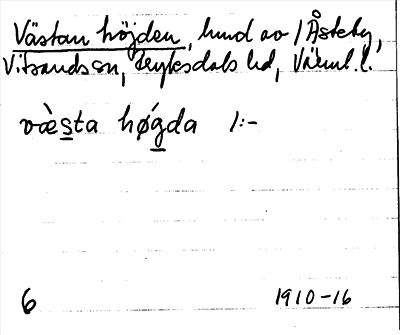 Västan höjden, hmd av / Åsteby,
Vitsands sn, Fryksdals hd, Värml. l.
væ̀s̲ta hǿg̲da /:-
6 1910-16